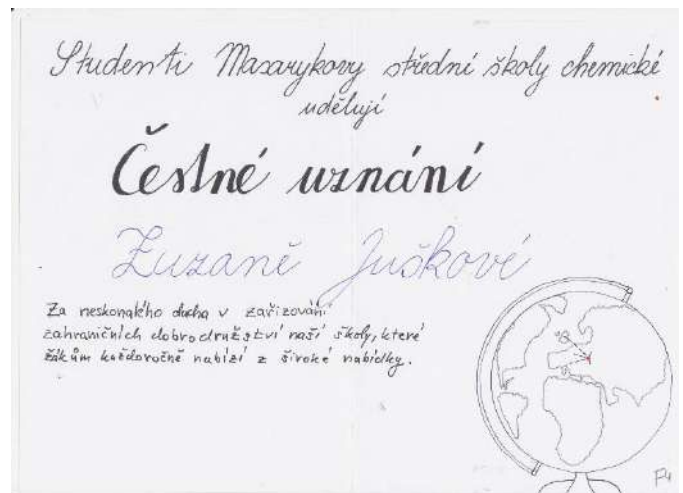 Studenti Masarykovy střední školy chemické
udělují
Čestné uznání
Zuzaně Juškové
Za neskonalého ducha v zařizování
zahraničních dobrodružství naší školy, které
žákům každoročně nabízí z široké nabídky.
F4